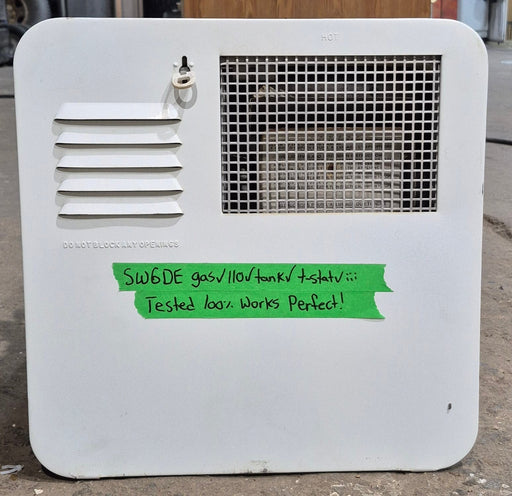 HOT
DO NOT BLOCK ANY OPENINGS
SW6DE gas√ 110√ tank√ t-stat√
Tested 100% Works Perfect!